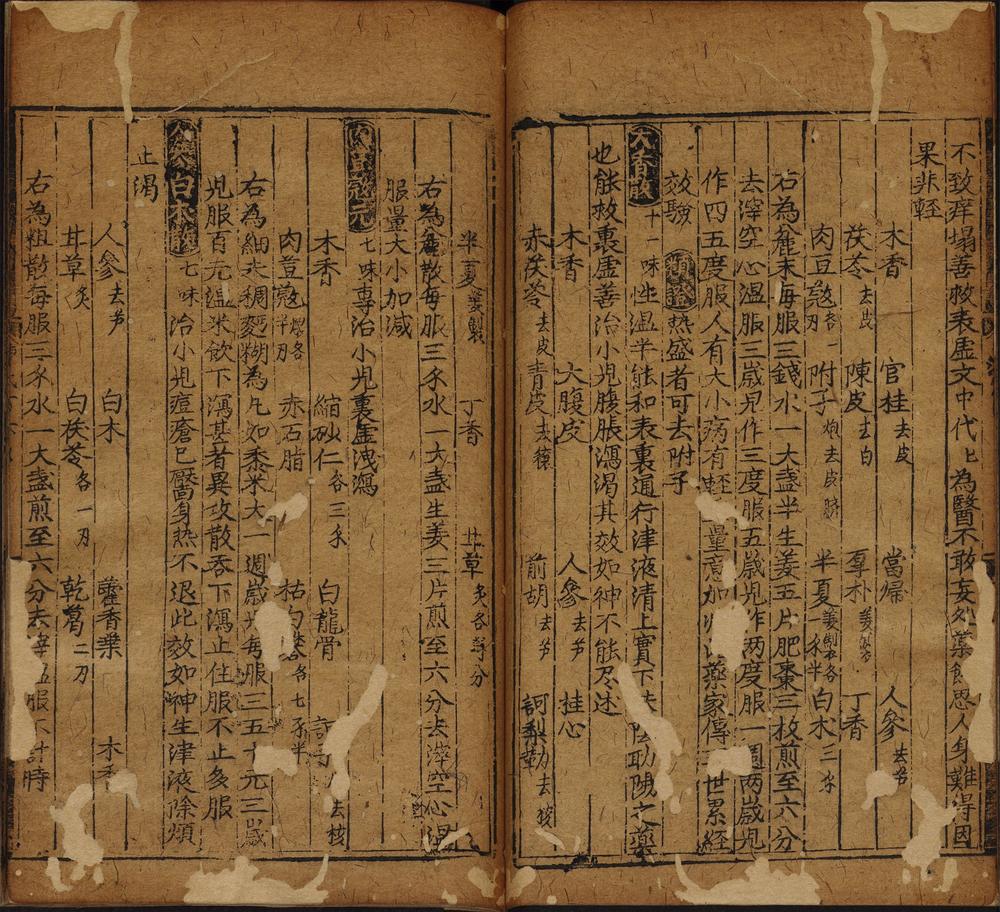 不致痒塌善救表虛文中代匕為醫不敢妄処藥餌思人身難得因
果非軽
木香 官桂去皮 當帰 人參去芦
茯苓去皮 陳皮去白 厚朴姜製 丁香
肉豆蔲各一刄 附子炮去皮臍 半夏姜製各一禾半 白朮三禾
右為䉺末每服三錢水一大盞半生姜五片肥棗三枚煎至六分
去滓空心温服三歳児作三度服五歳児作两度服一週两歳児
作四五度服人有大小病有軽 量意加 藥家傳 世累経
效驗 熱盛者可去附子
木香散 十一味 性温平能和表裏通行津液清上實下 助陽之藥
也能救裏虛善治小児腹脹瀉渇其效如神不能尽述
木香 大腹皮 人參去芦 桂心
赤茯苓去皮 青皮去穰 前胡去芦 訶梨勒去核
半夏姜製 丁香 甘草炙各等分
右為䉺散每服三禾水一大盞生姜三片煎至六分去滓空心温
服量大小加減
肉豆蔲元 七味専治小児裏虛洩瀉
木香 縮砂仁各三禾 白龍骨 訶子 去核
肉荳蔲 各半刄 赤石脂 枯白礬各七禾半
右為細末稠麪糊為凢如黍米大一週歳児每服三五十元三歳
児服百元温米飲下瀉甚者異攻散吞下瀉止住服不止多服
白朮散 七味 治小児痘瘡已靨身热不退此效如神生津液除煩
止渇
人參去芦 白朮 藿香葉 木香
甘草炙 白茯苓各一刄 乾葛二刄
右為粗散每服三禾水一大盞煎至六分去滓温服不計時